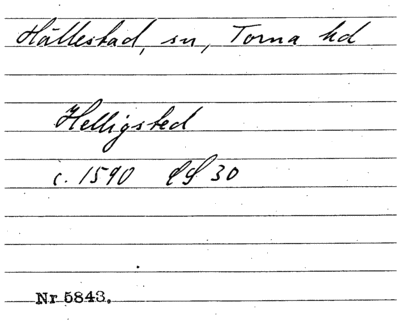 Hällestad, sn, Torna hd
Helligsted
c. 1590 LS 30
Nr 5843.